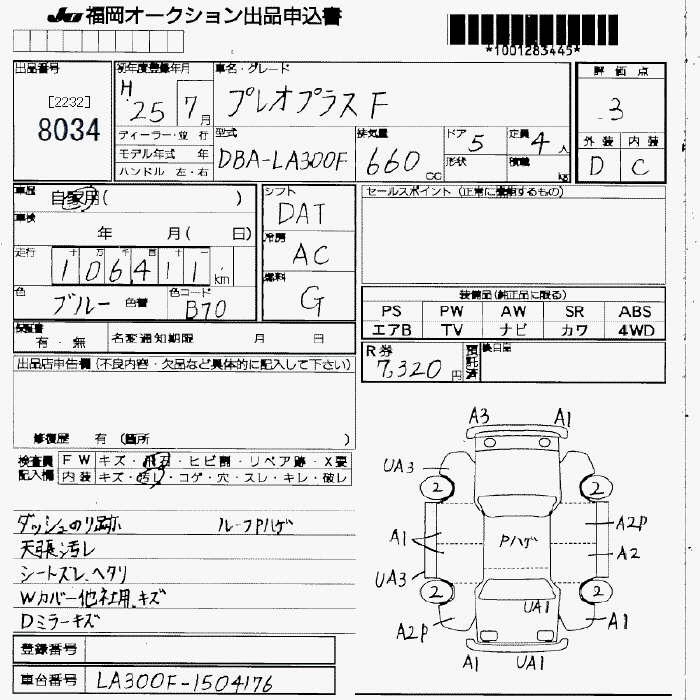 JU 福岡オークション出品申込書
*1001283445*
出品番号 [2232] 8034
初年度登録年月 H 25 7月
車名・グレード プレオプラス F
ディーラー・並行
モデル年式 年
ハンドル 左・右
型式 DBA-LA300F
排気量 660 CC
ドア 5 定員 4人
形状 積載 kg
評価点 3
外装 内装
D C
車歴 自家用( )
車検 年 月( 日)
走行 十万千百十
106411 km
色 ブルー 色替 色コード B70
シフト DAT
冷房 AC
燃料 G
セールスポイント (正常に機能するもの)
装備品(純正品に限る)
PS PW AW SR ABS
エアB TV ナビ カワ 4WD
保証書 有・無 名変通知期限 月 日
R券 7,320円 預託済
出品店申告欄 (不良内容・欠品など具体的に記入して下さい)
修復歴 有 (箇所 )
検査員記入欄
FW キズ・飛石・ヒビ割・リペア跡・X要
内装 キズ・汚れ・コゲ・穴・スレ・キレ・破レ
ダッシュのり跡 ルーフPハゲ
天張汚レ
シートズレ、ヘタリ
Wカバー他社用、キズ
Dミラーキズ
登録番号
車台番号 LA300F-1504176
A3 A1
UA3
2 2
A1 Pハゲ A2P
A2
UA3
2 2
UA1
A2P A1
A1 UA1